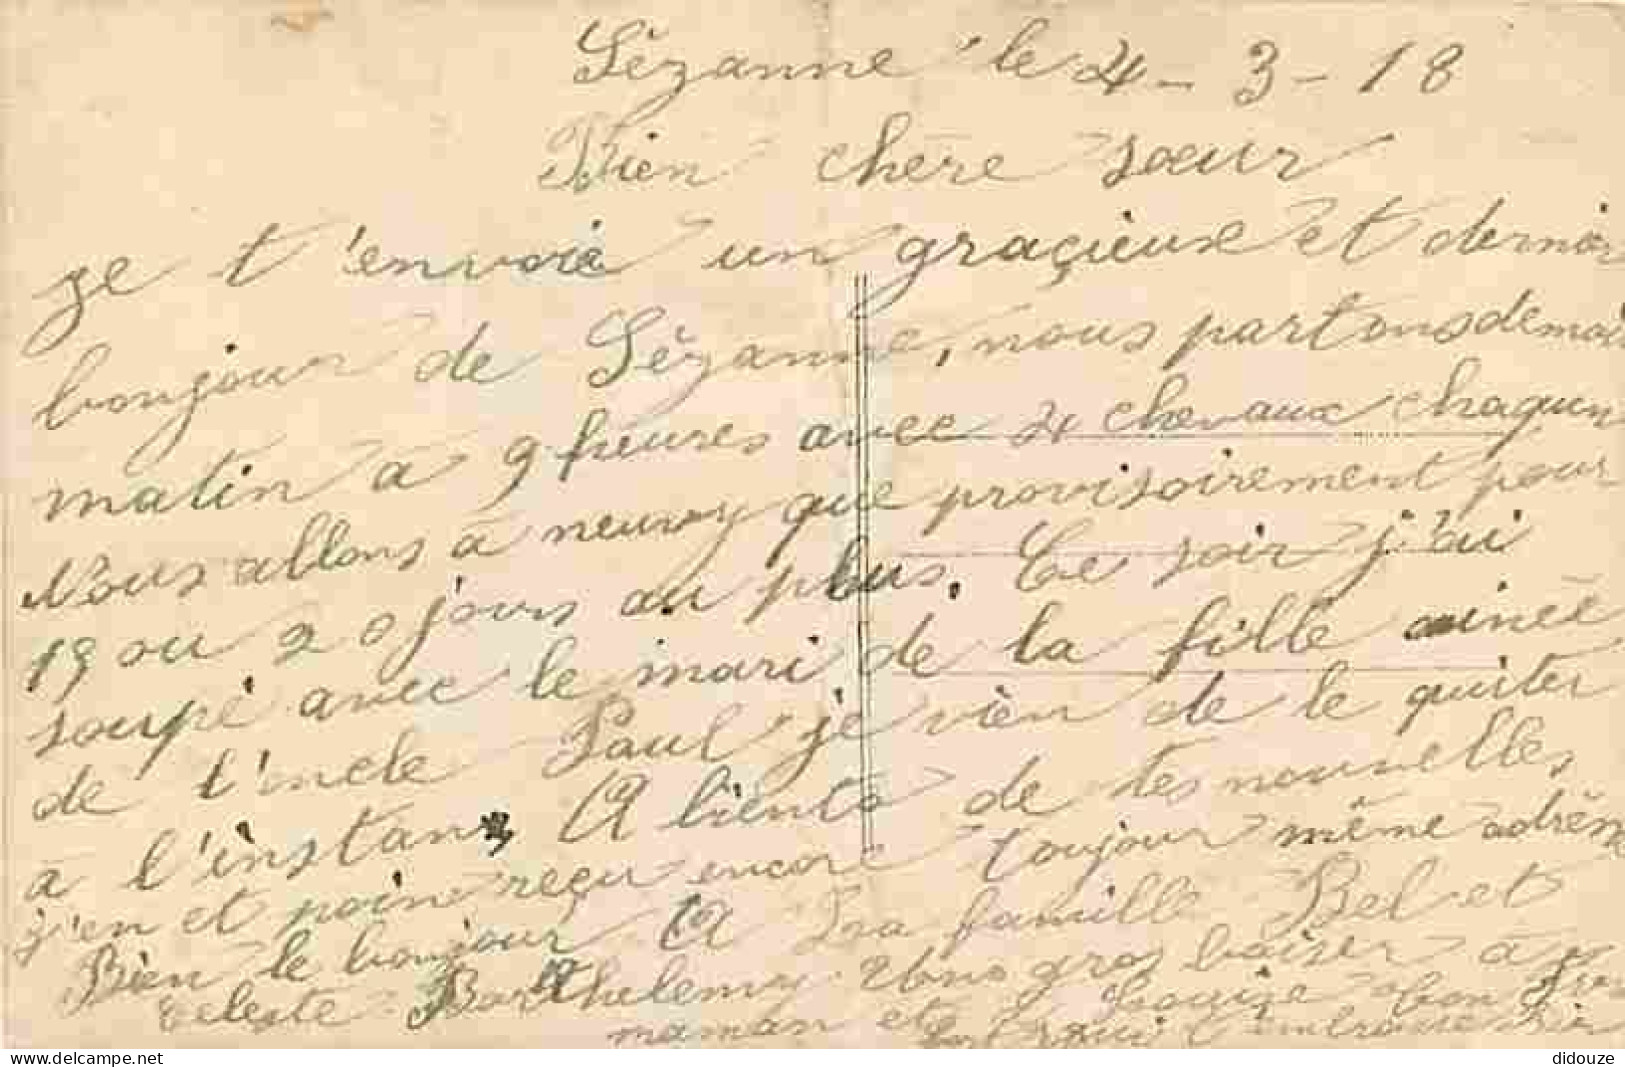 Sézanne le 4 - 3 - 18
Bien chère sœur
Je t'envoie un graçieuse et dernièr
bonjour de Sézanne, nous partons demain
matin a 9 heures avec 4 chevaux chaquun
Nous allons à neuvoy que provisoirement pour
19 ou 20 jours au plus. Ce soir j'ai
soupé avec le mari de la fille ainée
de l'oncle Paul je vièn de le quiter
a l'instan A biento de tes nouvelles,
j'en et poin reçu encore toujour même adrêse
Bien le bonjour A la famille Bel et
Celeste Barthelemy. un gros baiser à
maman et Louise ton frère
qui t'embrasse bien
didouze